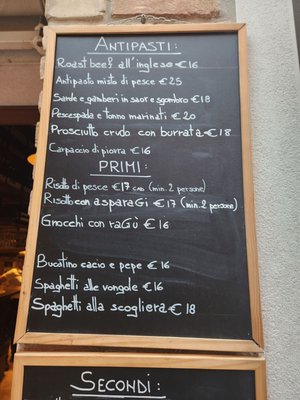 ANTIPASTI:
Roast beef all'inglese €16
Antipasto misto di pesce €25
Sarde e gamberi in saor e sgombro €18
Pescespada e tonno marinati €20
Prosciutto crudo con burrata €18
Carpaccio di piovra €16
PRIMI:
Risotto di pesce €17 cad (min. 2 persone)
Risotto con asparaGi €17 (min. 2 persone)
Gnocchi con raGù €16
Bucatino cacio e pepe €16
Spaghetti alle vongole €16
Spaghetti alla scogliera €18
SECONDI: